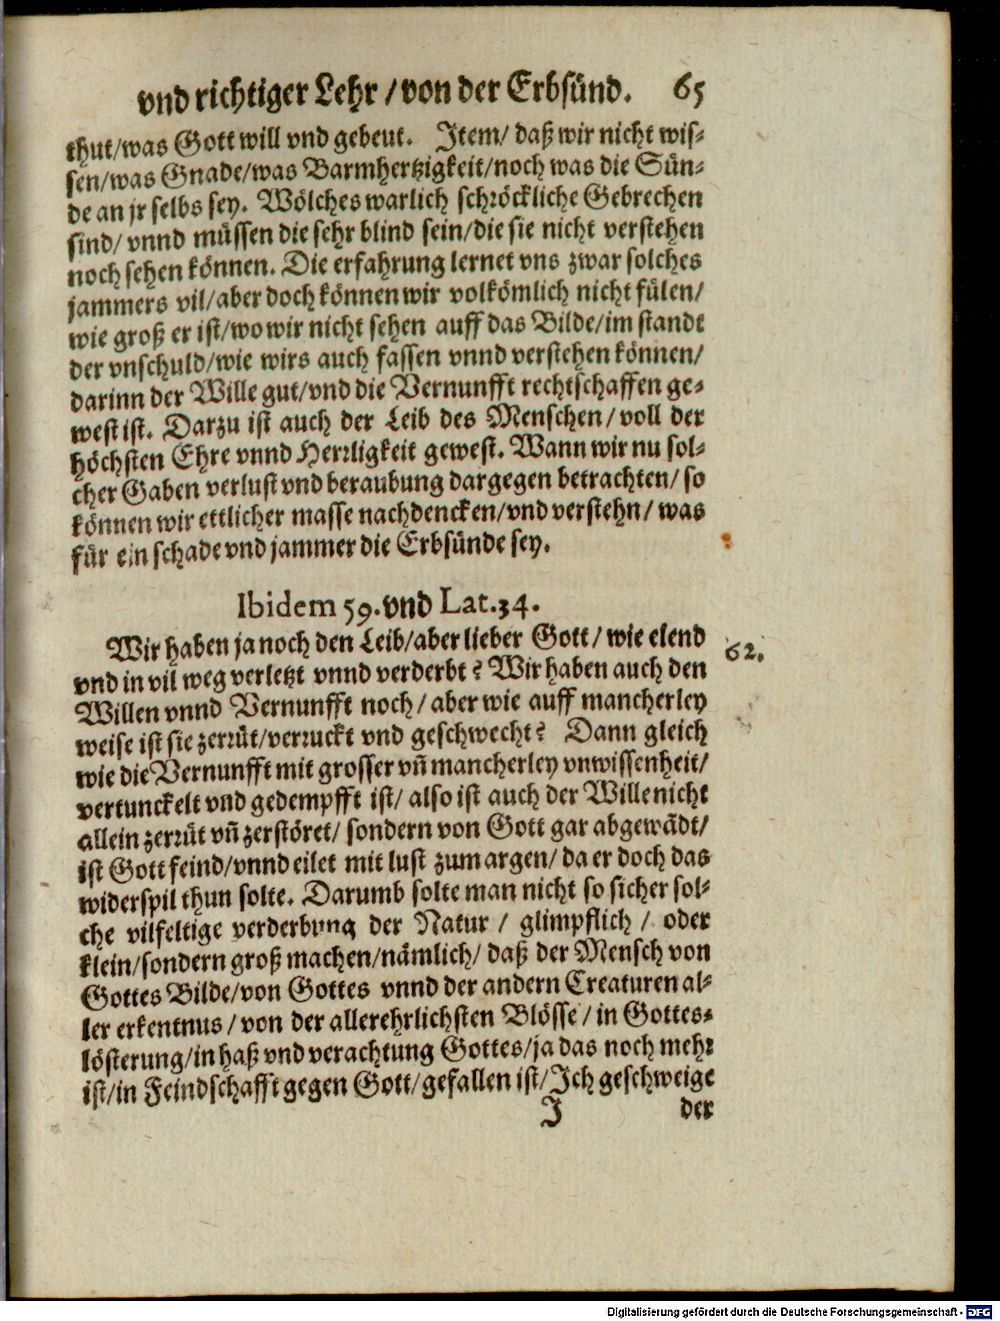 vnd richtiger Lehr / von der Erbsünd. 65
thut/was Gott will vnd gebeut. Item/ daß wir nicht wis-
sen/was Gnade/was Barmhertzigkeit/noch was die Sün-
de an jr selbs sey. Wölches warlich schröckliche Gebrechen
sind/ vnnd müssen die sehr blind sein/die sie nicht verstehen
noch sehen können. Die erfahrung lernet vns zwar solches
jammers vil/aber doch können wir volkömlich nicht fülen/
wie groß er ist/wo wir nicht sehen auff das Bilde/im standt
der vnschuld/wie wirs auch fassen vnnd verstehen können/
darinn der Wille gut/vnd die Vernunfft rechtschaffen ge-
west ist. Darzu ist auch der Leib des Menschen/voll der
höchsten Ehre vnnd Herrligkeit gewest. Wann wir nu sol-
cher Gaben verlust vnd beraubung dargegen betrachten/ so
können wir ettlicher masse nachdencken/vnd verstehn/ was
für ein schade vnd jammer die Erbsünde sey.
Ibidem 59. vnd Lat. 34.
Wir haben ja noch den Leib/aber lieber Gott/ wie elend 62.
vnd in vil weg verletzt vnnd verderbt? Wir haben auch den
Willen vnnd Vernunfft noch/ aber wie auff mancherley
weise ist sie zerrüt/verruckt vnd geschwecht? Dann gleich
wie die Vernunfft mit grosser vñ mancherley vnwissenheit/
vertunckelt vnd gedempfft ist/ also ist auch der Wille nicht
allein zerrüt vñ zerstöret/ sondern von Gott gar abgewãdt/
ist Gott feind/vnnd eilet mit lust zum argen/ da er doch das
widerspil thun solte. Darumb solte man nicht so sicher sol-
che vilfeltige verderbung der Natur / glimpflich / oder
klein/sondern groß machen/nämlich/ daß der Mensch von
Gottes Bilde/von Gottes vnnd der andern Creaturen al-
ler erkentnus / von der allerehrlichsten Blösse / in Gottes-
lösterung/in haß vnd verachtung Gottes/ja das noch mehr
ist/in Feindschafft gegen Gott/gefallen ist/Ich geschweige
J der
Digitalisierung gefördert durch die Deutsche Forschungsgemeinschaft - DFG